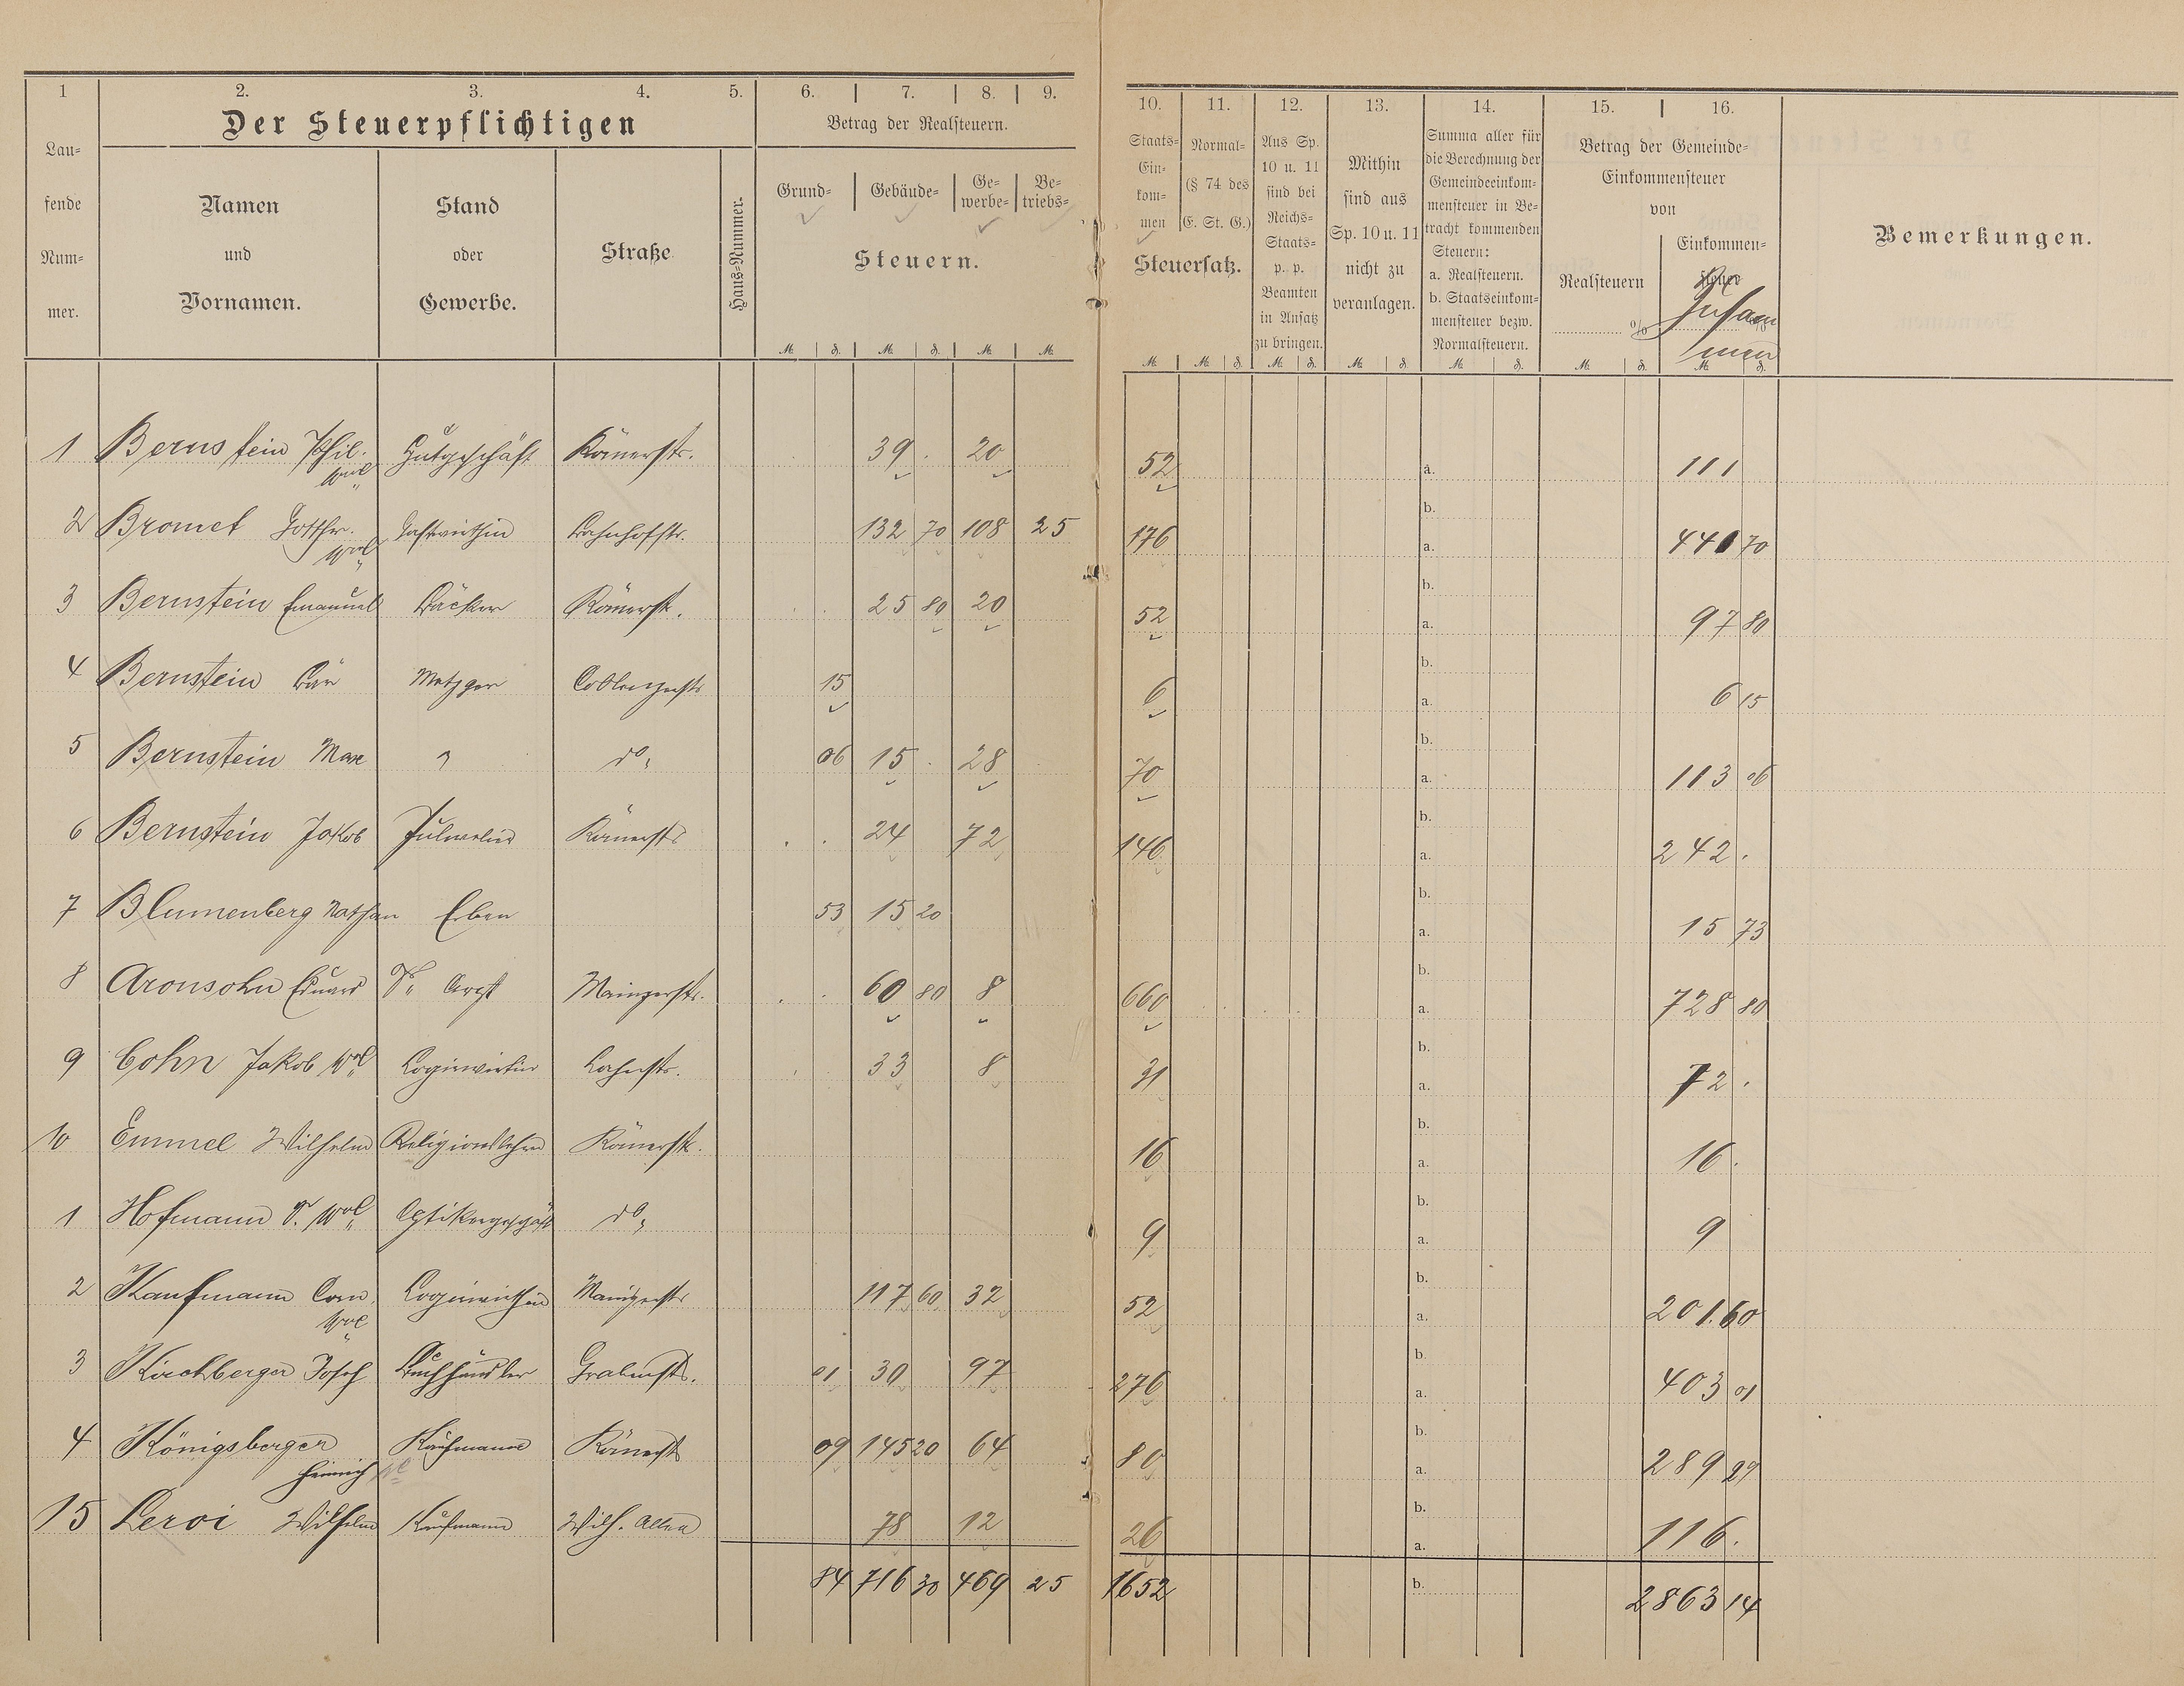 1 2. 3. 4. 5. 6. 7. 8. 9. 10. 11. 12. 13. 14. 15. 16.
Der Steuerpflichtigen
Lau-
fende
Num-
mer.
Namen
und
Vornamen.
Stand
oder
Gewerbe.
Straße
Haus-Nummer.
Betrag der Realsteuern.
Grund- Gebäude- Ge-
werbe- Be-
triebs-
Steuern.
Staats-
Ein-
kom-
men
Normal-
(§ 74 des
E. St. G.)
Steuersatz.
Aus Sp.
10 u. 11
sind bei
Reichs-
Staats-
p. p.
Beamten
in Ansatz
zu bringen.
Mithin
sind aus
Sp. 10 u. 11
nicht zu
veranlagen.
Summa aller für
die Berechnung der
Gemeindeeinkom-
mensteuer in Be-
tracht kommenden
Steuern:
a. Realsteuern.
b. Staatseinkom-
mensteuer bezw.
Normalsteuern.
Betrag der Gemeinde-
Einkommensteuer
von
Realsteuern
%
Einkommen-
steuer
Zusam
men
Bemerkungen.
M. ₰. M. ₰. M. M. M. M. ₰. M. ₰. M. ₰. M. ₰. M. ₰. M. ₰.
1 Bernstein Phil. Wwe Hutgeschäft Römerstr. 39 . 20 52 a. 111
b.
2 Bromet Gotthr. Wwe Gastwirthin Bahnhofstr. 132 70 108 25 176 a. 441 70
b.
3 Bernstein Emanuel Bäcker Römerstr. 25 80 20 52 a. 97 80
b.
4 Bernstein Bär Metzger Coblenzerstr 15 6 a. 6 15
b.
5 Bernstein Max " do 06 15 . 28 70 a. 113 06
b.
6 Bernstein Jakob Juwelier Römerstr 24 72 146 a. 242 .
b.
7 Blumenberg Nathan Erben 53 15 20 a. 15 73
b.
8 Aronsohn Eduard Dr. Arzt Mainzerstr. 60 80 8 660 a. 728 80
b.
9 Cohn Jakob Wwe Logirwirtin Lahnstr. 33 8 31 a. 72 .
b.
10 Emmel Wilhelm Religionslehrer Römerstr. 16 a. 16 .
b.
1 Hofmann Wwe Optikergeschäft do 9 a. 9
b.
2 Kaufmann Wwe Logirwirthin Mainzerstr 117 60 32 52 a. 201.60
b.
3 Kirchberger Josef Buchhändler Grabenstr. 01 30 97 276 a. 403 01
b.
4 Königsberger Heinrich Kaufmann Römerstr 09 145 20 64 80 a. 289 29
b.
15 Leroi Wilhelm Kaufmann Wilh. Allee 78 12 26 a. 116 .
84 716 30 469 25 1652 b. 2863 14